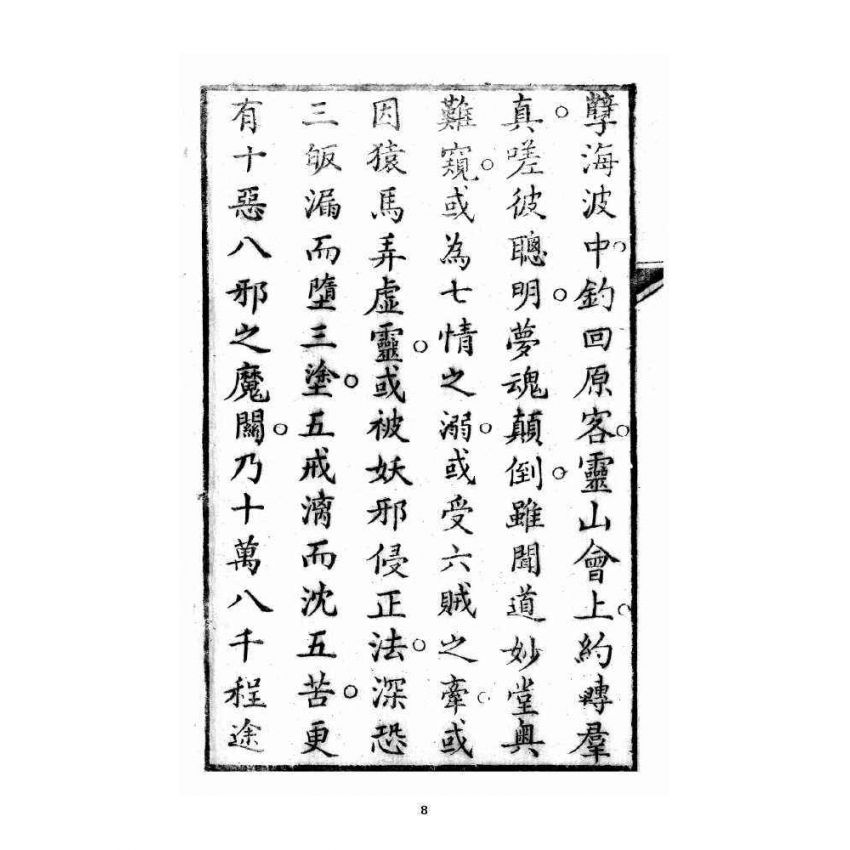 孽海波中○釣回原客○靈山會上○約轉羣
真○嗟彼聰明○夢魂顛倒○雖聞道妙堂奧
難窺○或為七情之溺○或受六賊之牽○或
因猿馬弄虛靈○或被妖邪侵正法○深恐
三皈漏而墮三塗○五戒漓而沈五苦○更
有十惡八邪之魔關○乃十萬八千程途
8